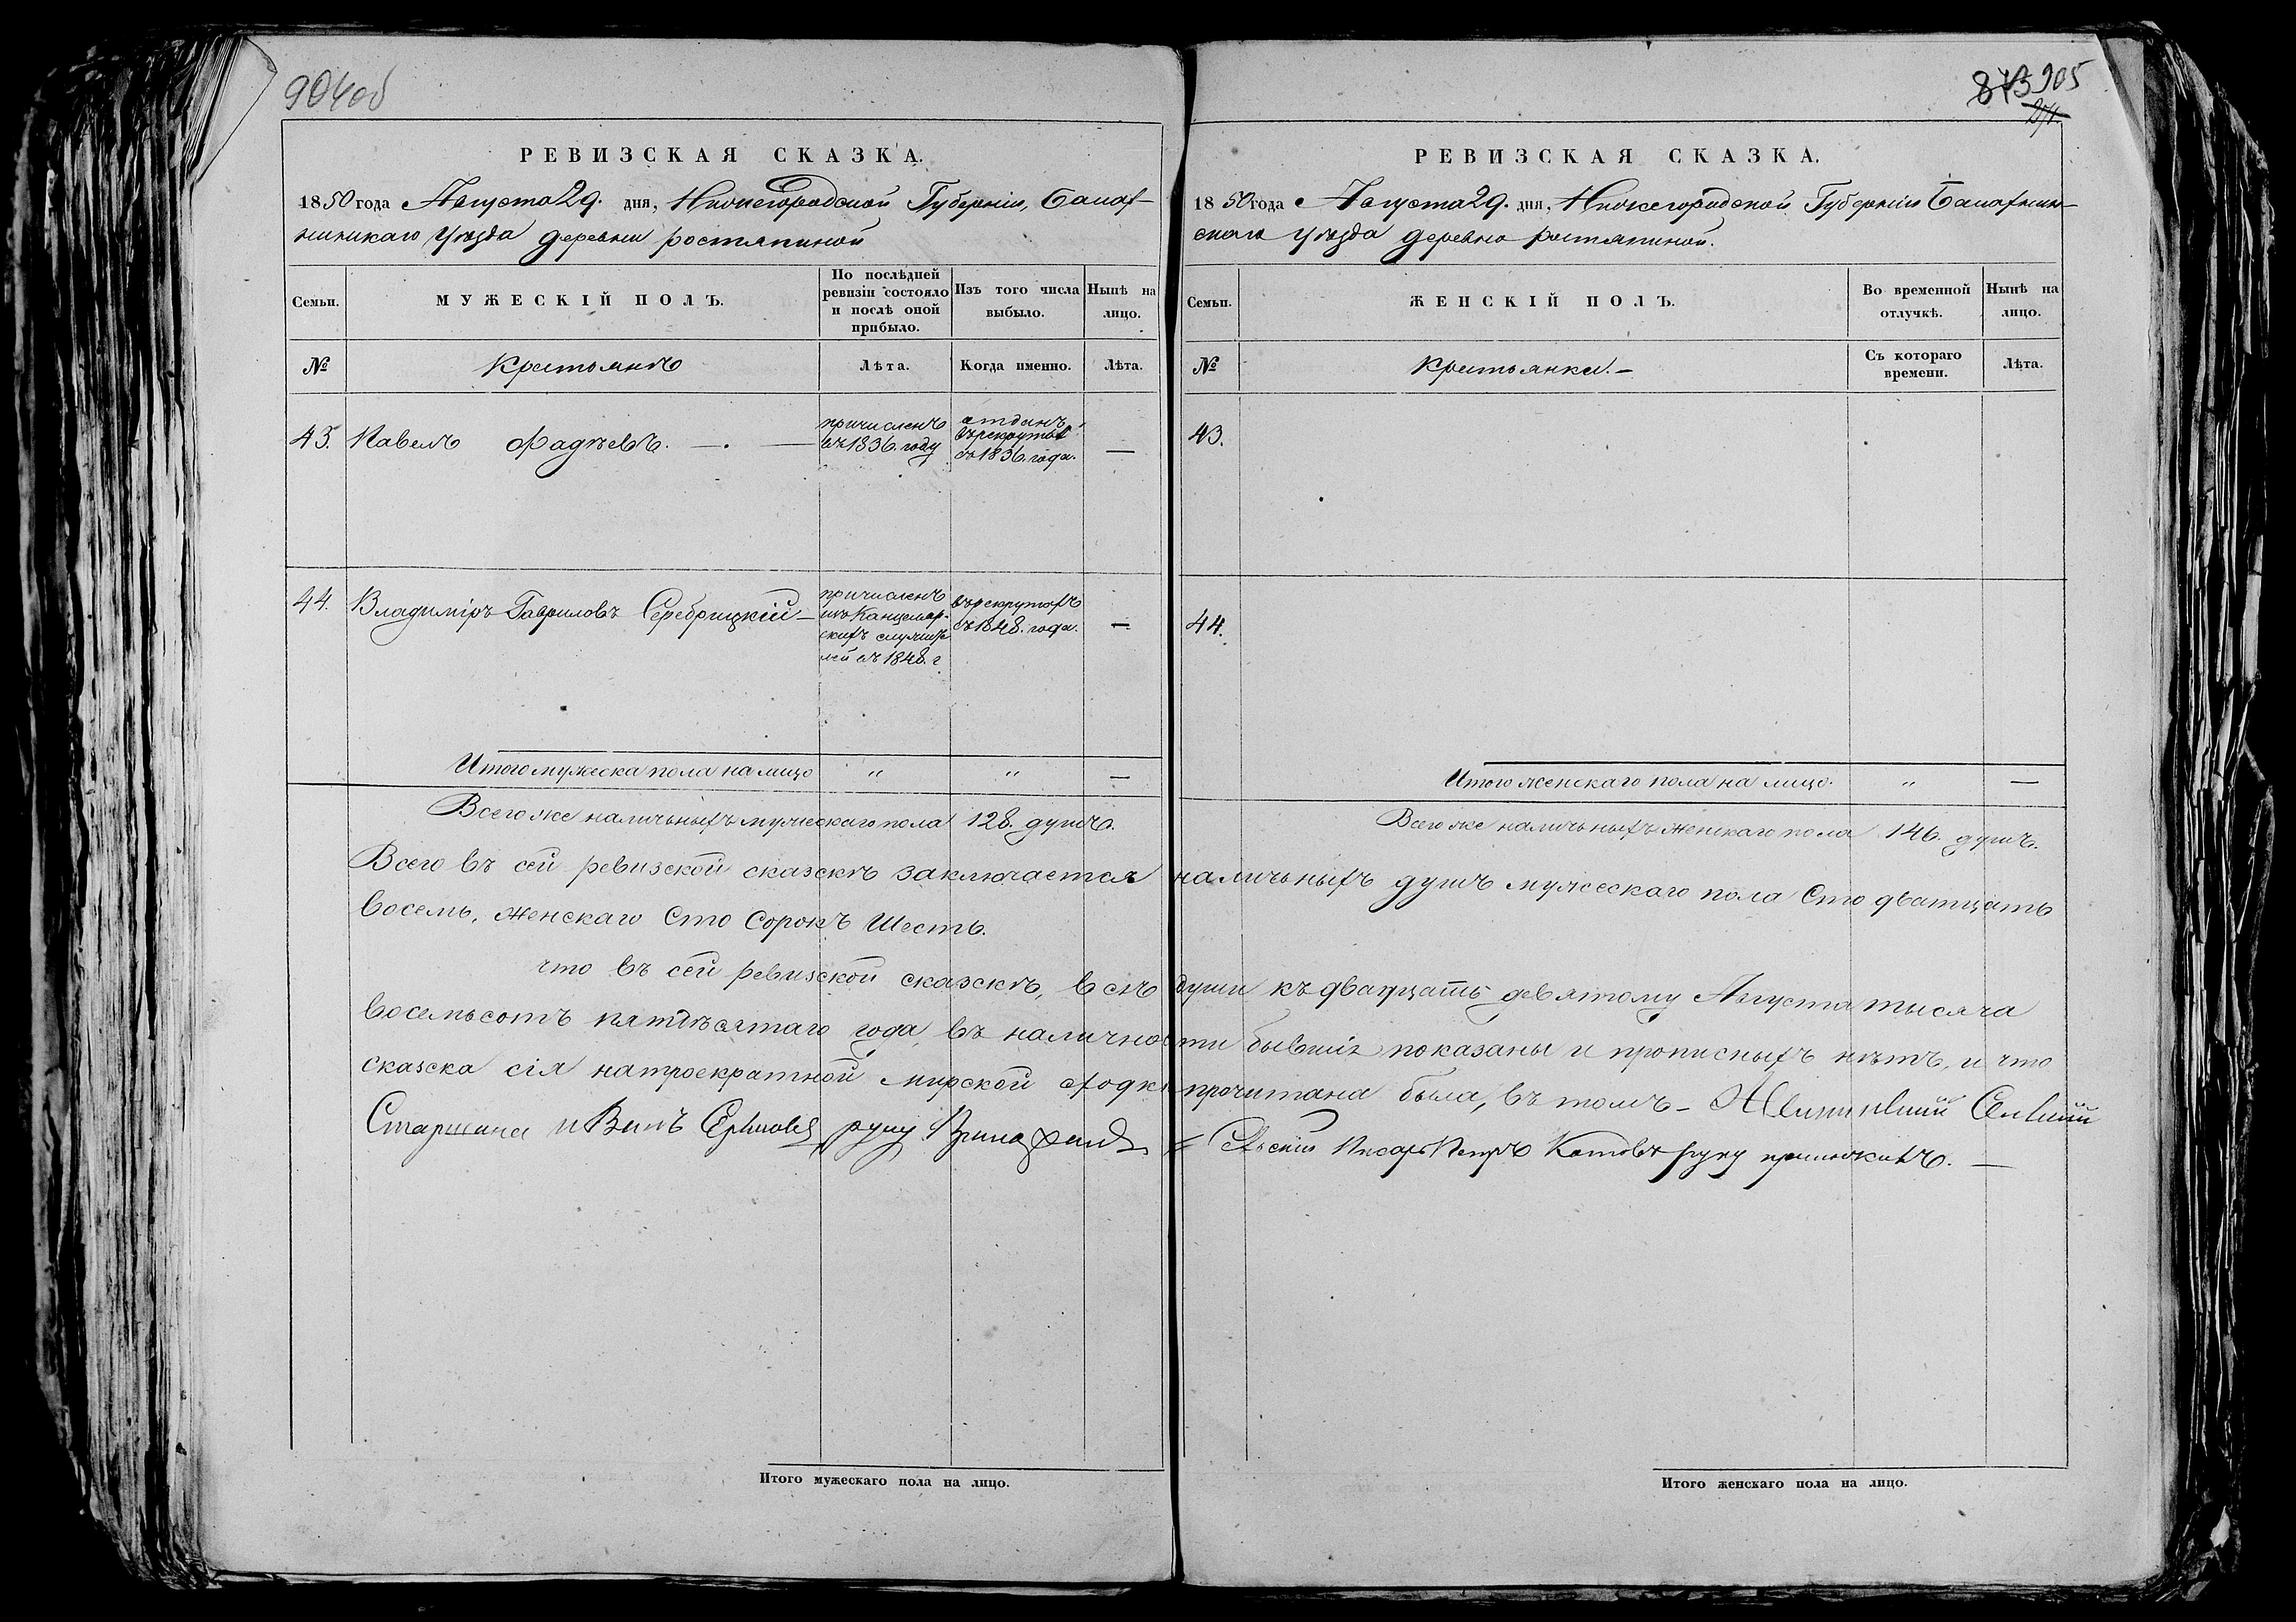 904об
РЕВИЗСКАЯ СКАЗКА.
1850 года Августа 29. дня, Нижегородской Губерніи, Балах-
нинскаго Уѣзда деревни ростяпиной
Семьи.
МУЖЕСКІЙ ПОЛЪ.
По послѣдней ревизіи состояло и послѣ оной прибыло.
Изъ того числа выбыло.
Нынѣ на лицо.
№
Крестьянъ
Лѣта.
Когда именно.
Лѣта.
43. Павелъ Фадѣевъ. —. —
причисленъ
въ 1836. году
отданъ
въ рекруты
въ 1836. года.
—
44. Владиміръ Гавриловъ Серебрицкій —
причисленъ
изъ Канцеляр-
скихъ служите
лей въ 1848. г
въ рекрутахъ
съ 1848. года.
—
Итого мужеска пола на лицо " " —
Всего же наличныхъ мужескаго пола 128. душъ.
873 905
РЕВИЗСКАЯ СКАЗКА.
1850 года Августа 29. дня, Нижегородской Губерніи Балахнин-
скаго Уѣзда деревни ростяпиной.
Семьи.
ЖЕНСКІЙ ПОЛЪ.
Во временной отлучкѣ.
Нынѣ на лицо.
№
Крестьянки. —
Съ котораго времени.
Лѣта.
43.
44.
Итого женскаго пола на лицо. " —
Всего же наличныхъ женскаго пола 146. душъ.
Всего въ сей ревизской сказскѣ заключается наличьныхъ душъ мужескаго пола Сто дватцать
восемь, женскаго Сто Сорокъ Шесть.
что въ сей ревизской сказскѣ, всѣ души къ дватцать девятому Августа тысяча
восемьсотъ пятдѣсятаго года, въ наличности бывшія показаны и прописныхъ нѣтъ, и что
сказска сія натроекратной мирской сходки прочитана была, въ томъ —
Старшина иВанъ руку
Сельскій Писарь Петръ Котовъ руку приложилъ. —
Итого мужескаго пола на лицо.
Итого женскаго пола на лицо.